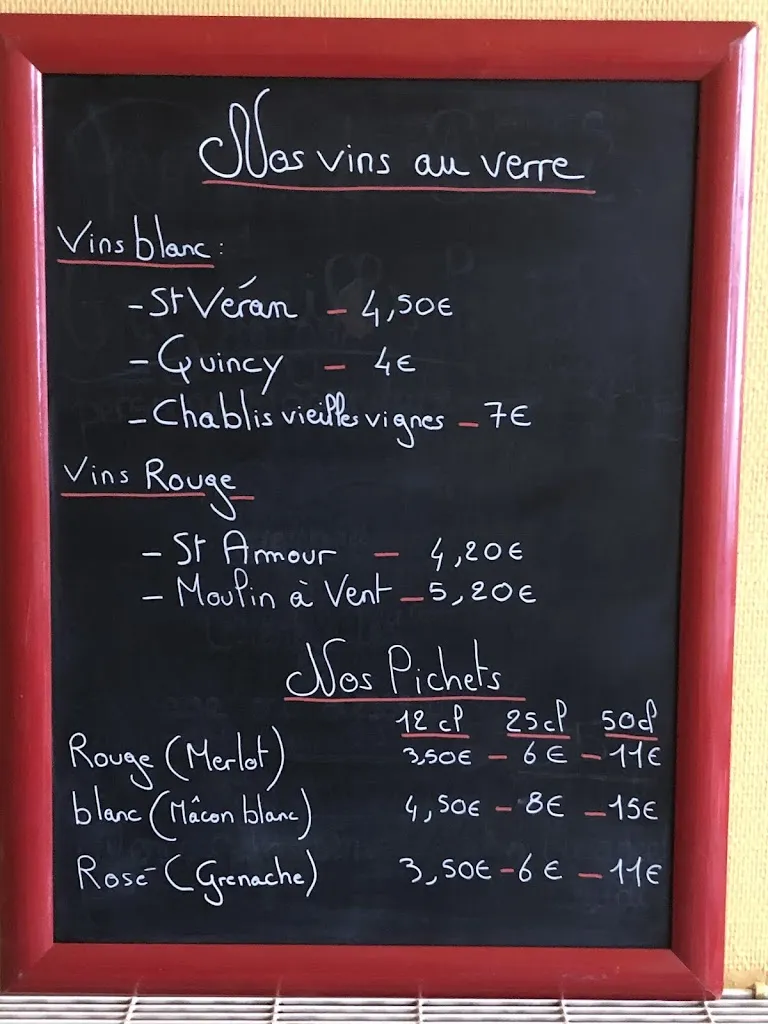 Nos vins au verre
Vins blanc :
- St Véran - 4,50€
- Quincy - 4€
- Chablis vieilles vignes - 7€
Vins Rouge
- St Amour - 4,20€
- Moulin à Vent - 5,20€
Nos Pichets
12 cl 25 cl 50 cl
Rouge (Merlot) 3,50€ - 6€ - 11€
blanc (Mâcon blanc) 4,50€ - 8€ - 15€
Rosé (Grenache) 3,50€ - 6€ - 11€